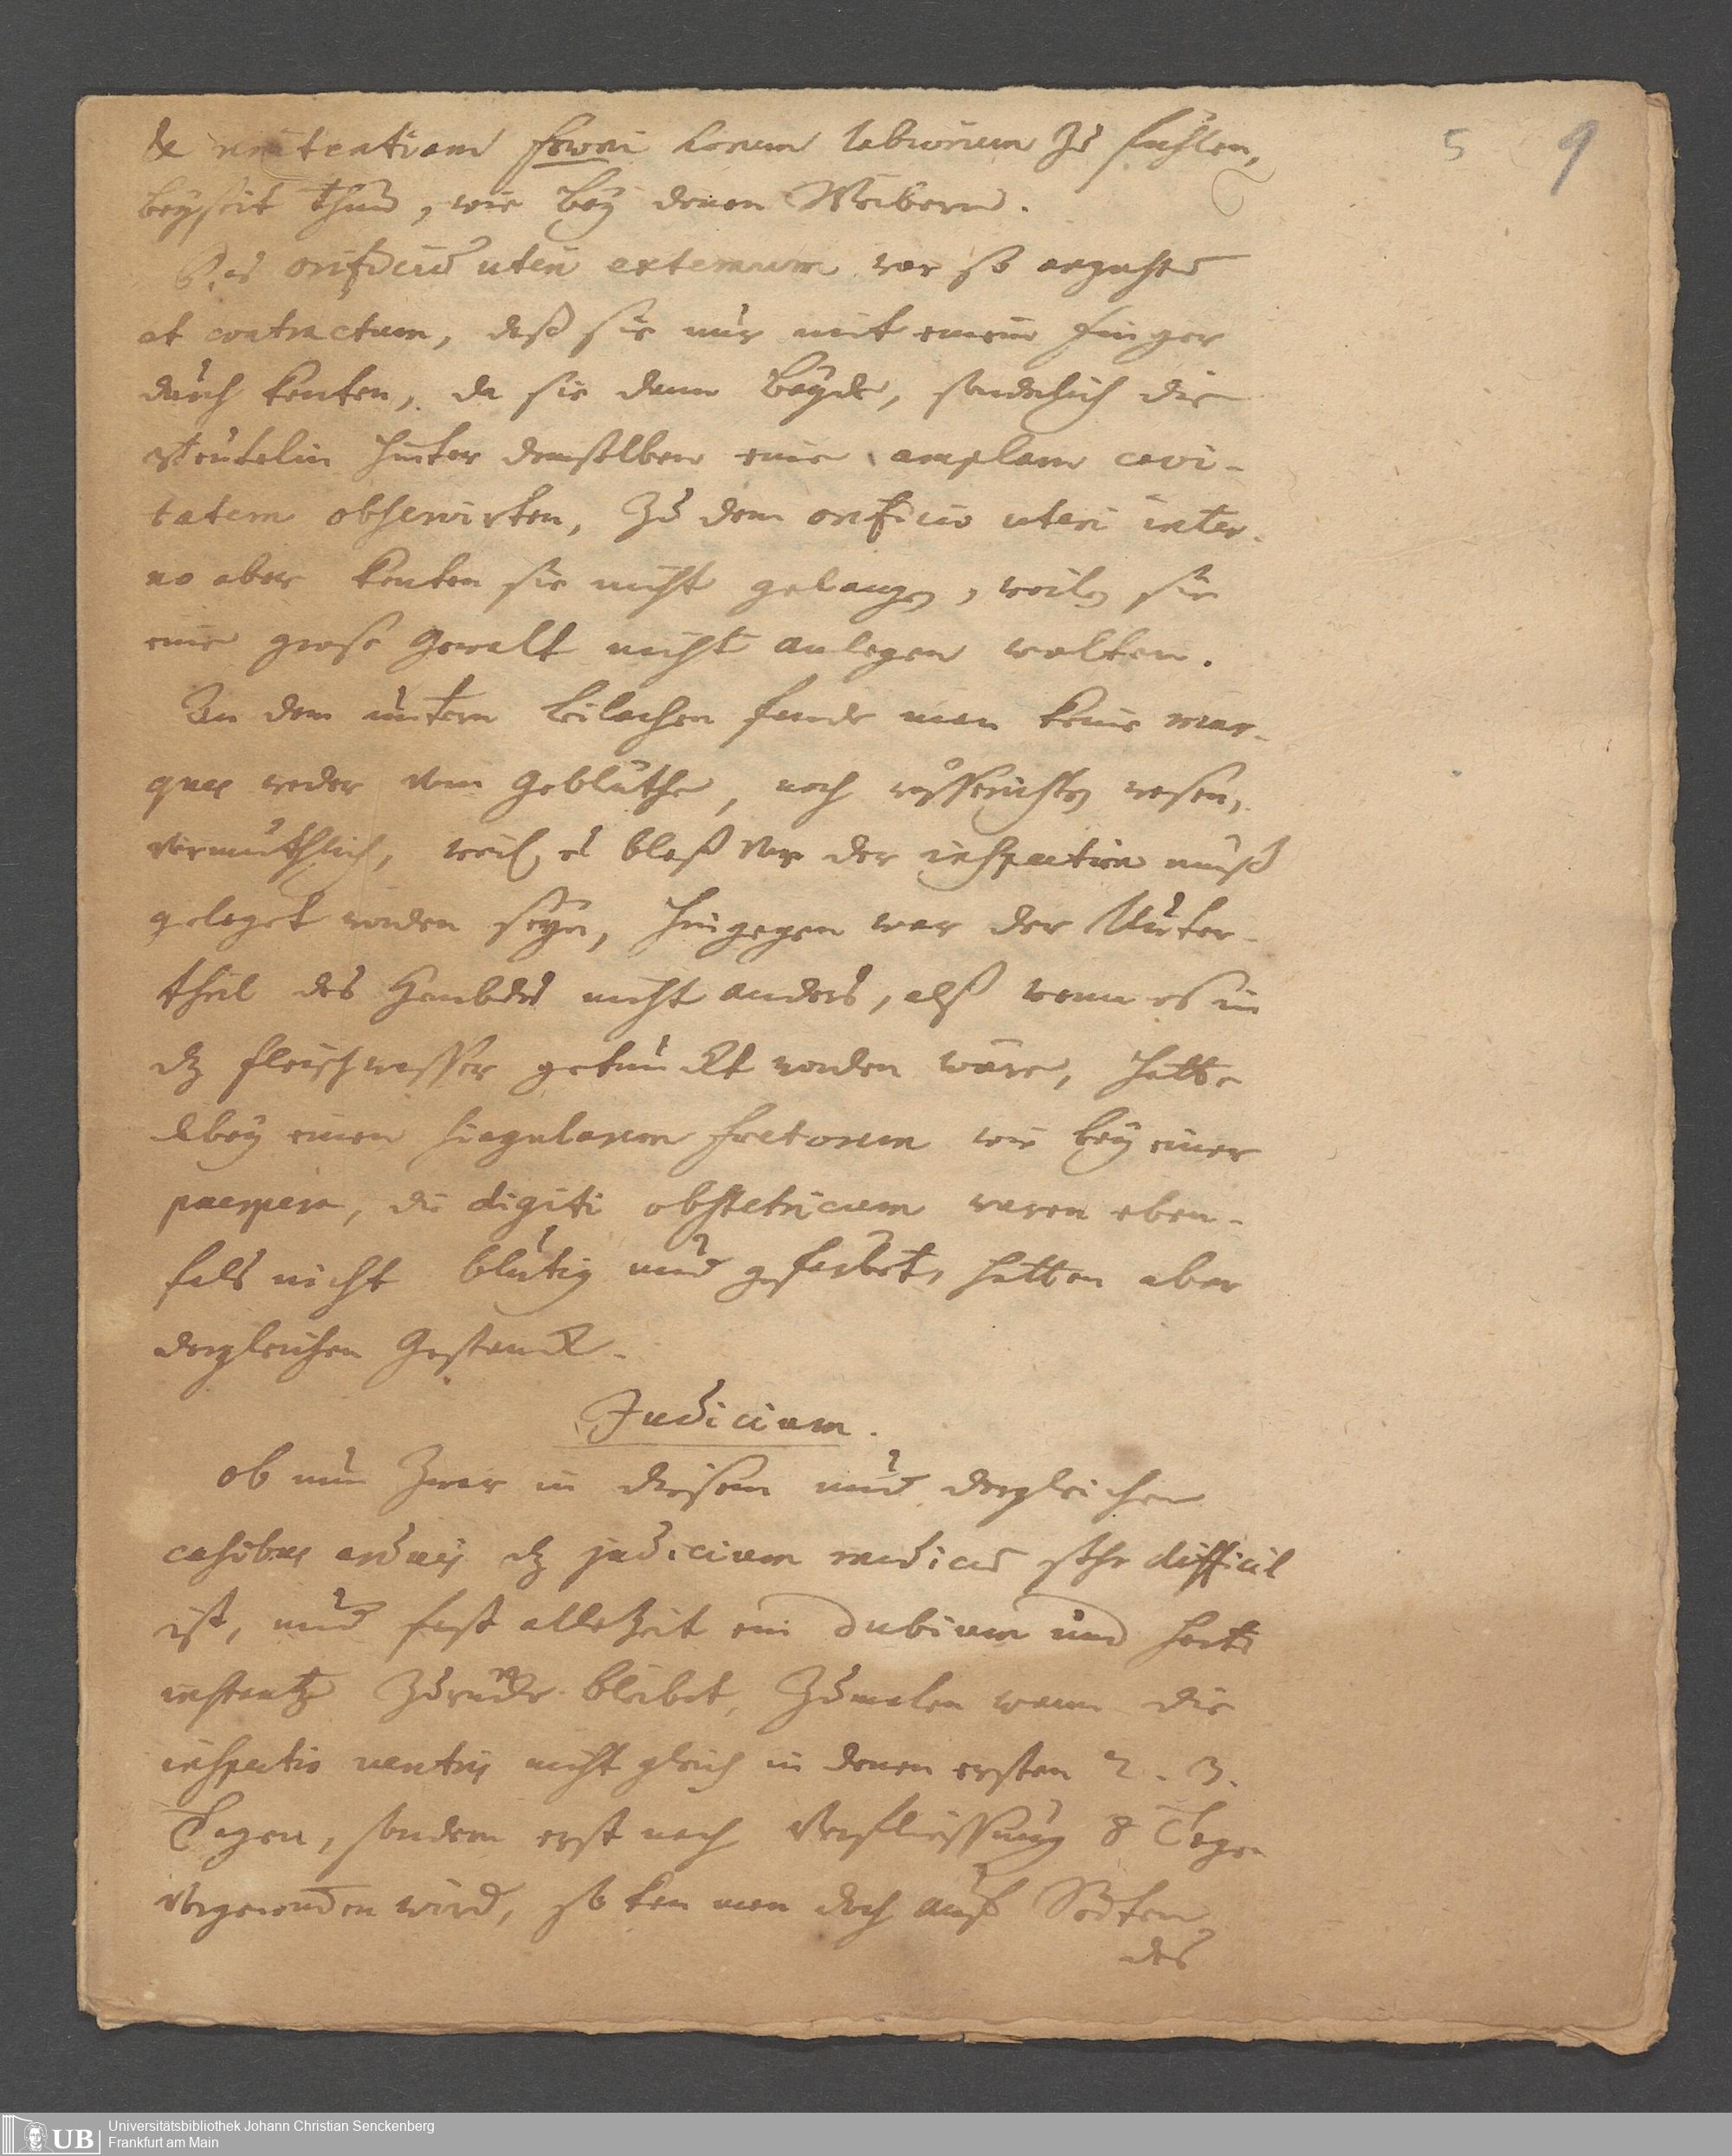 5 9
& zu fühlen,
beyseit thun, wie bey denen Weibern.
Das orificium uteri externum war so
et contractum, daß sie nur mit einem Finger
durch konten, da sie dann beyde, sonderlich die
hinter demselben eine amplam cavi-
tatem observirten, zu dem orificio uteri inter-
no aber konten sie nicht gelangen, weilen sie
eine große Gewalt nicht anlegen wolten.
In dem untern Leilachen fande man keine mar-
ques weder vom Geblüthe, noch wesen,
vermuthlich, weil es bloß vor der inspection muß
geleget worden seyn, hingegen war der Unter-
theil des Hembdes nicht anders, alß wenn es in
dz fleischwasser getunckt worden wäre, hatte
dabey einen singularem foetorem wie bey einer
puerpera, die digiti obstetricum waren eben-
fals nicht blutig und gefärbet, hatten aber
dergleichen Gestanck.
Judicium.
Ob nun zwar in diesem und dergleichen
casibus arduis dz judicium medicum sehr difficil
ist, und fast allezeit ein dubium und
instantz zurücke bleibet, zumalen wann die
inspectio ventris nicht gleich in denen ersten 2. 3.
Tagen, sondern erst nach Verfliessung 8 Tagen
vorgenommen wird, so kan man doch auf
des
UB Universitätsbibliothek Johann Christian Senckenberg
Frankfurt am Main